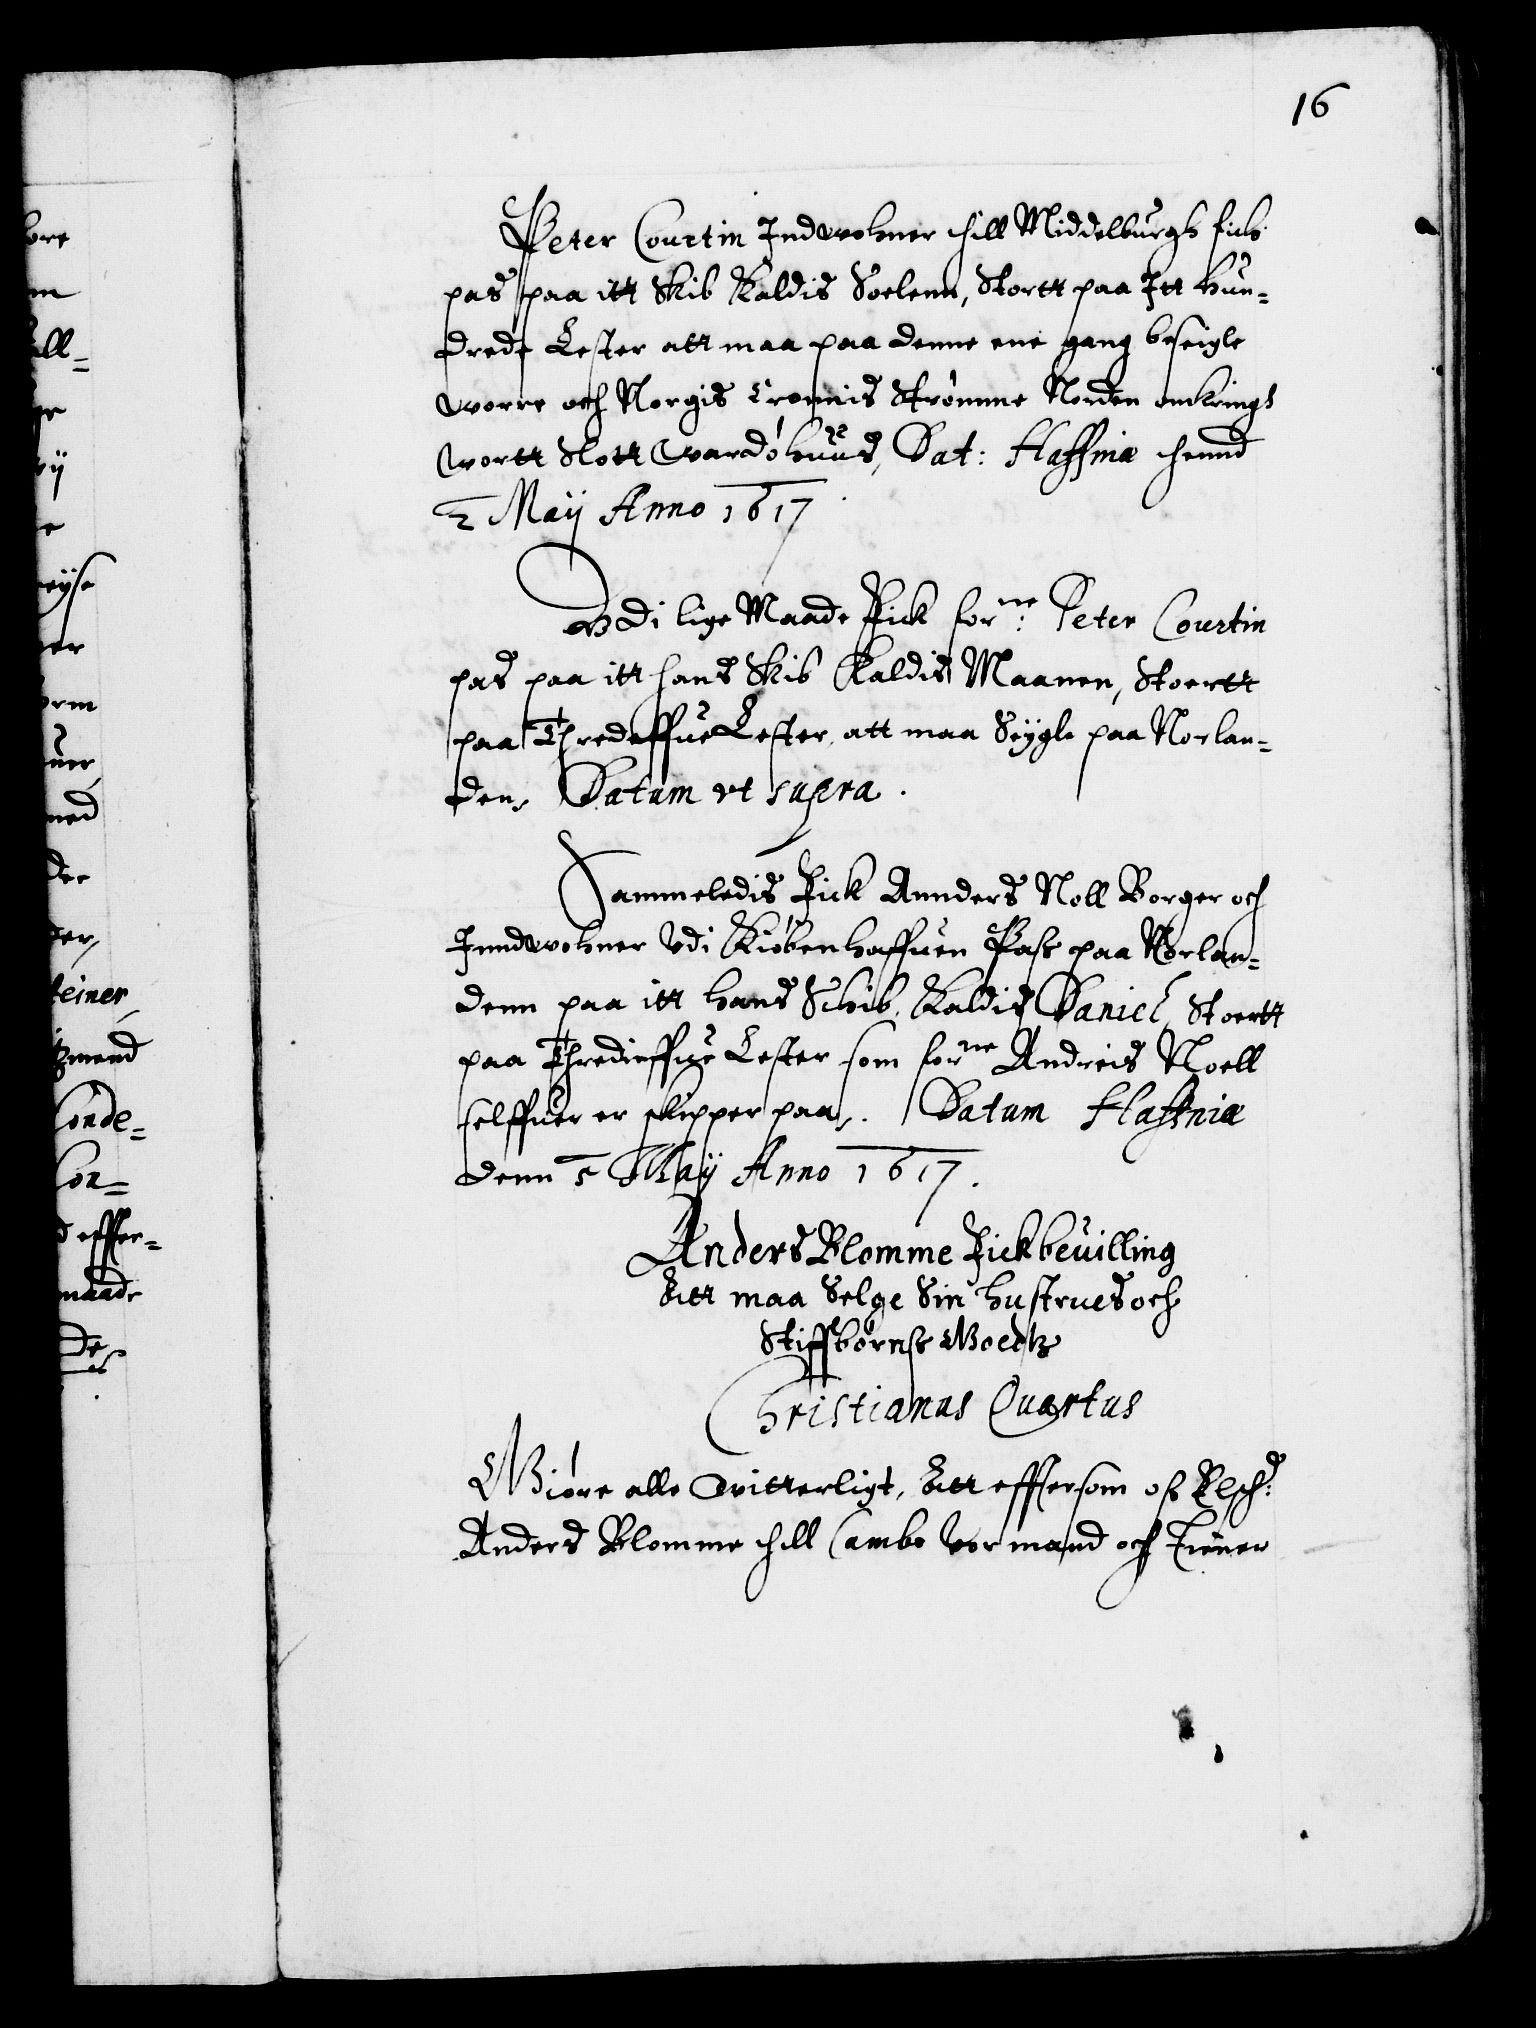 16
Peter Courtin Indwohner thill Middelburgh fick
pas paa itt Skib Kaldis Soelenn, Stortt paa Itt hun-
drede Lester att maa paa denne ene gang beseigle
worre och Norgis Cronnis Strømme Norden omkringh
wortt Slott Wardøhuus, Dat: Haffniæ thennd
2 Maij Anno 1617
Vdi lige Maade Fick forne: Peter Courtin
pas paa itt hans Skib Kaldis Maanen, Stoertt
paa Thredeffue Lester, att maa Seÿgle paa Norlan-
den, Datum vt supra.
Sammeledis Fick Annders Noll Borger och
Inndwohner Vdi Kiøbenhaffuen Pass paa Norlan-
denn paa itt hans Schib, Kaldis Daniel, Stoertt
paa Thredieffue Lester som forne Andreis Noell
selffuer er skipper paa. Datum Haffniæ
denn 5 Maij Anno 1617.
Anders Blomme Fick beuilling
Att maa Selge Sin hustrues och
Stiffbørnss Goedtz
Christianus Quartus
Giøre alle Witterligt, Att effttersom oss Elsch:
Anders Blomme thill Cambo Vor mand och Tiener
ll-
ÿ
eÿse
er
uer,
med
der,
teiner,
Conde-
Con-
effter-
maade